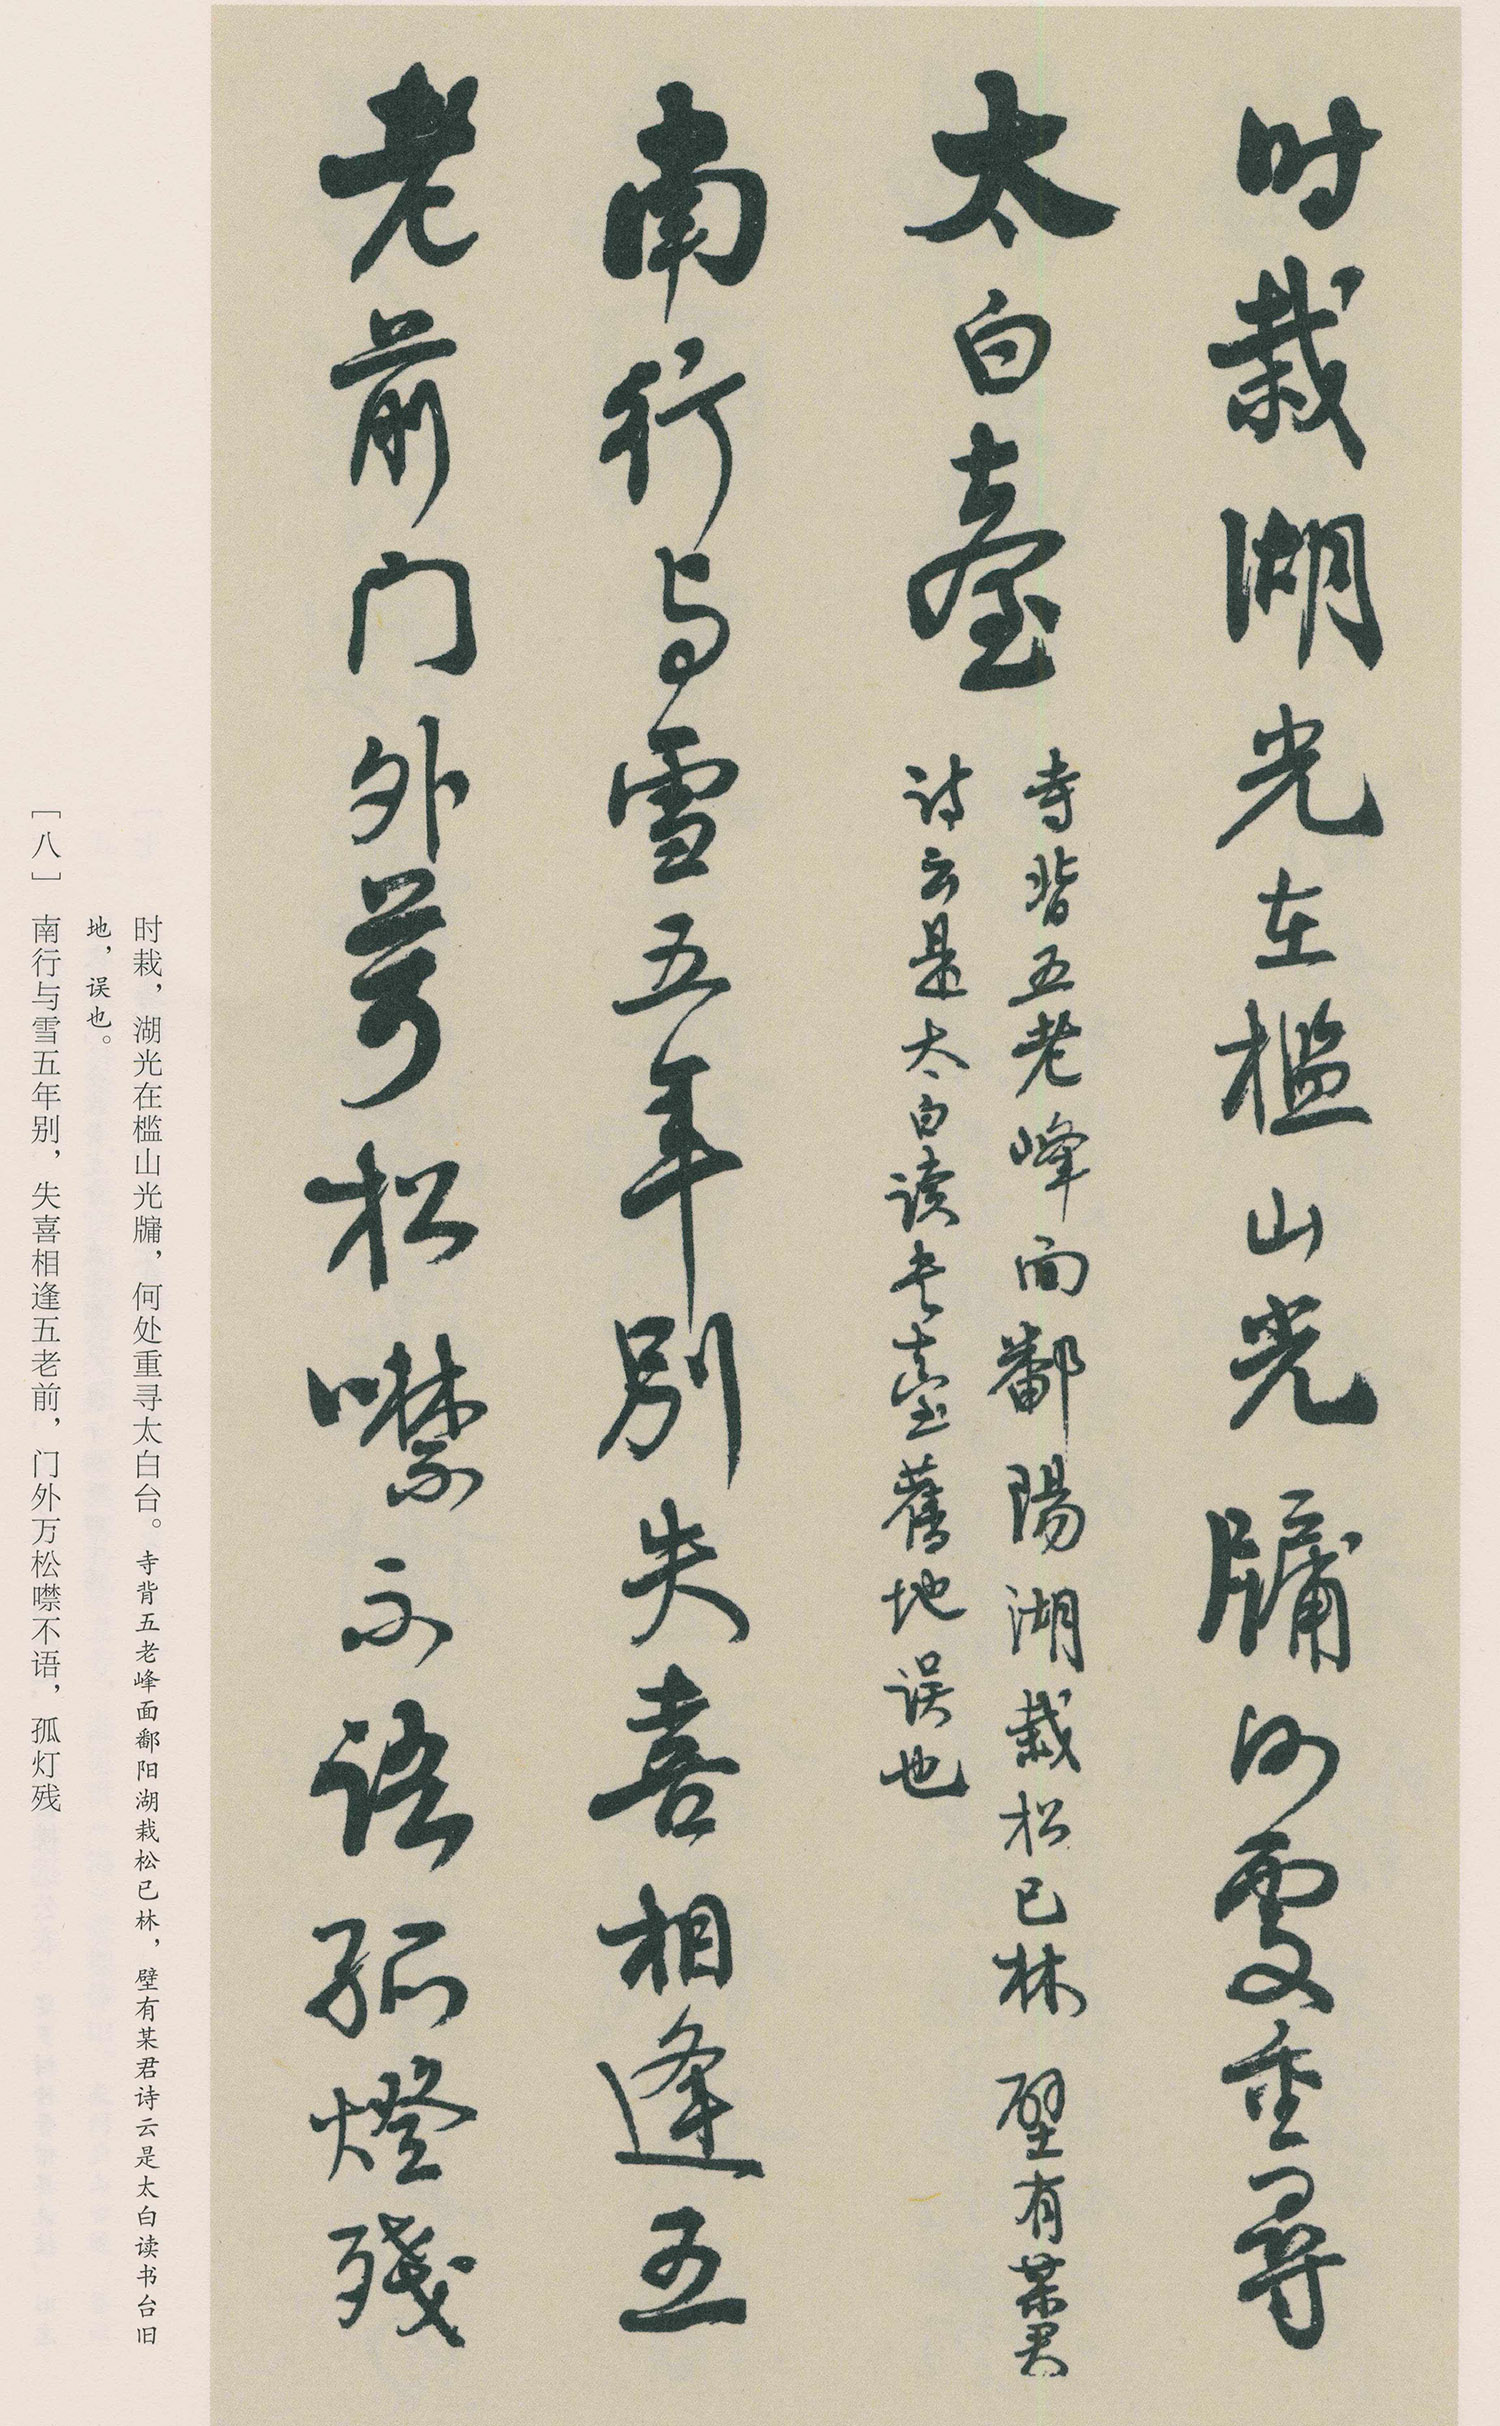 时栽湖光在槛山光牖何处重寻
太白臺
寺背五老峰面鄱陽湖栽松已林壁有某君
诗云是太白读书臺舊地误也
南行与雪五年别失喜相逢五
老前门外萬松噤不语孤燈残
时栽，湖光在槛山光牖，何处重寻太白台。寺背五老峰面鄱阳湖栽松已林，壁有某君诗云是太白读书台旧
地，误也。
［八］ 南行与雪五年别，失喜相逢五老前，门外万松噤不语，孤灯残